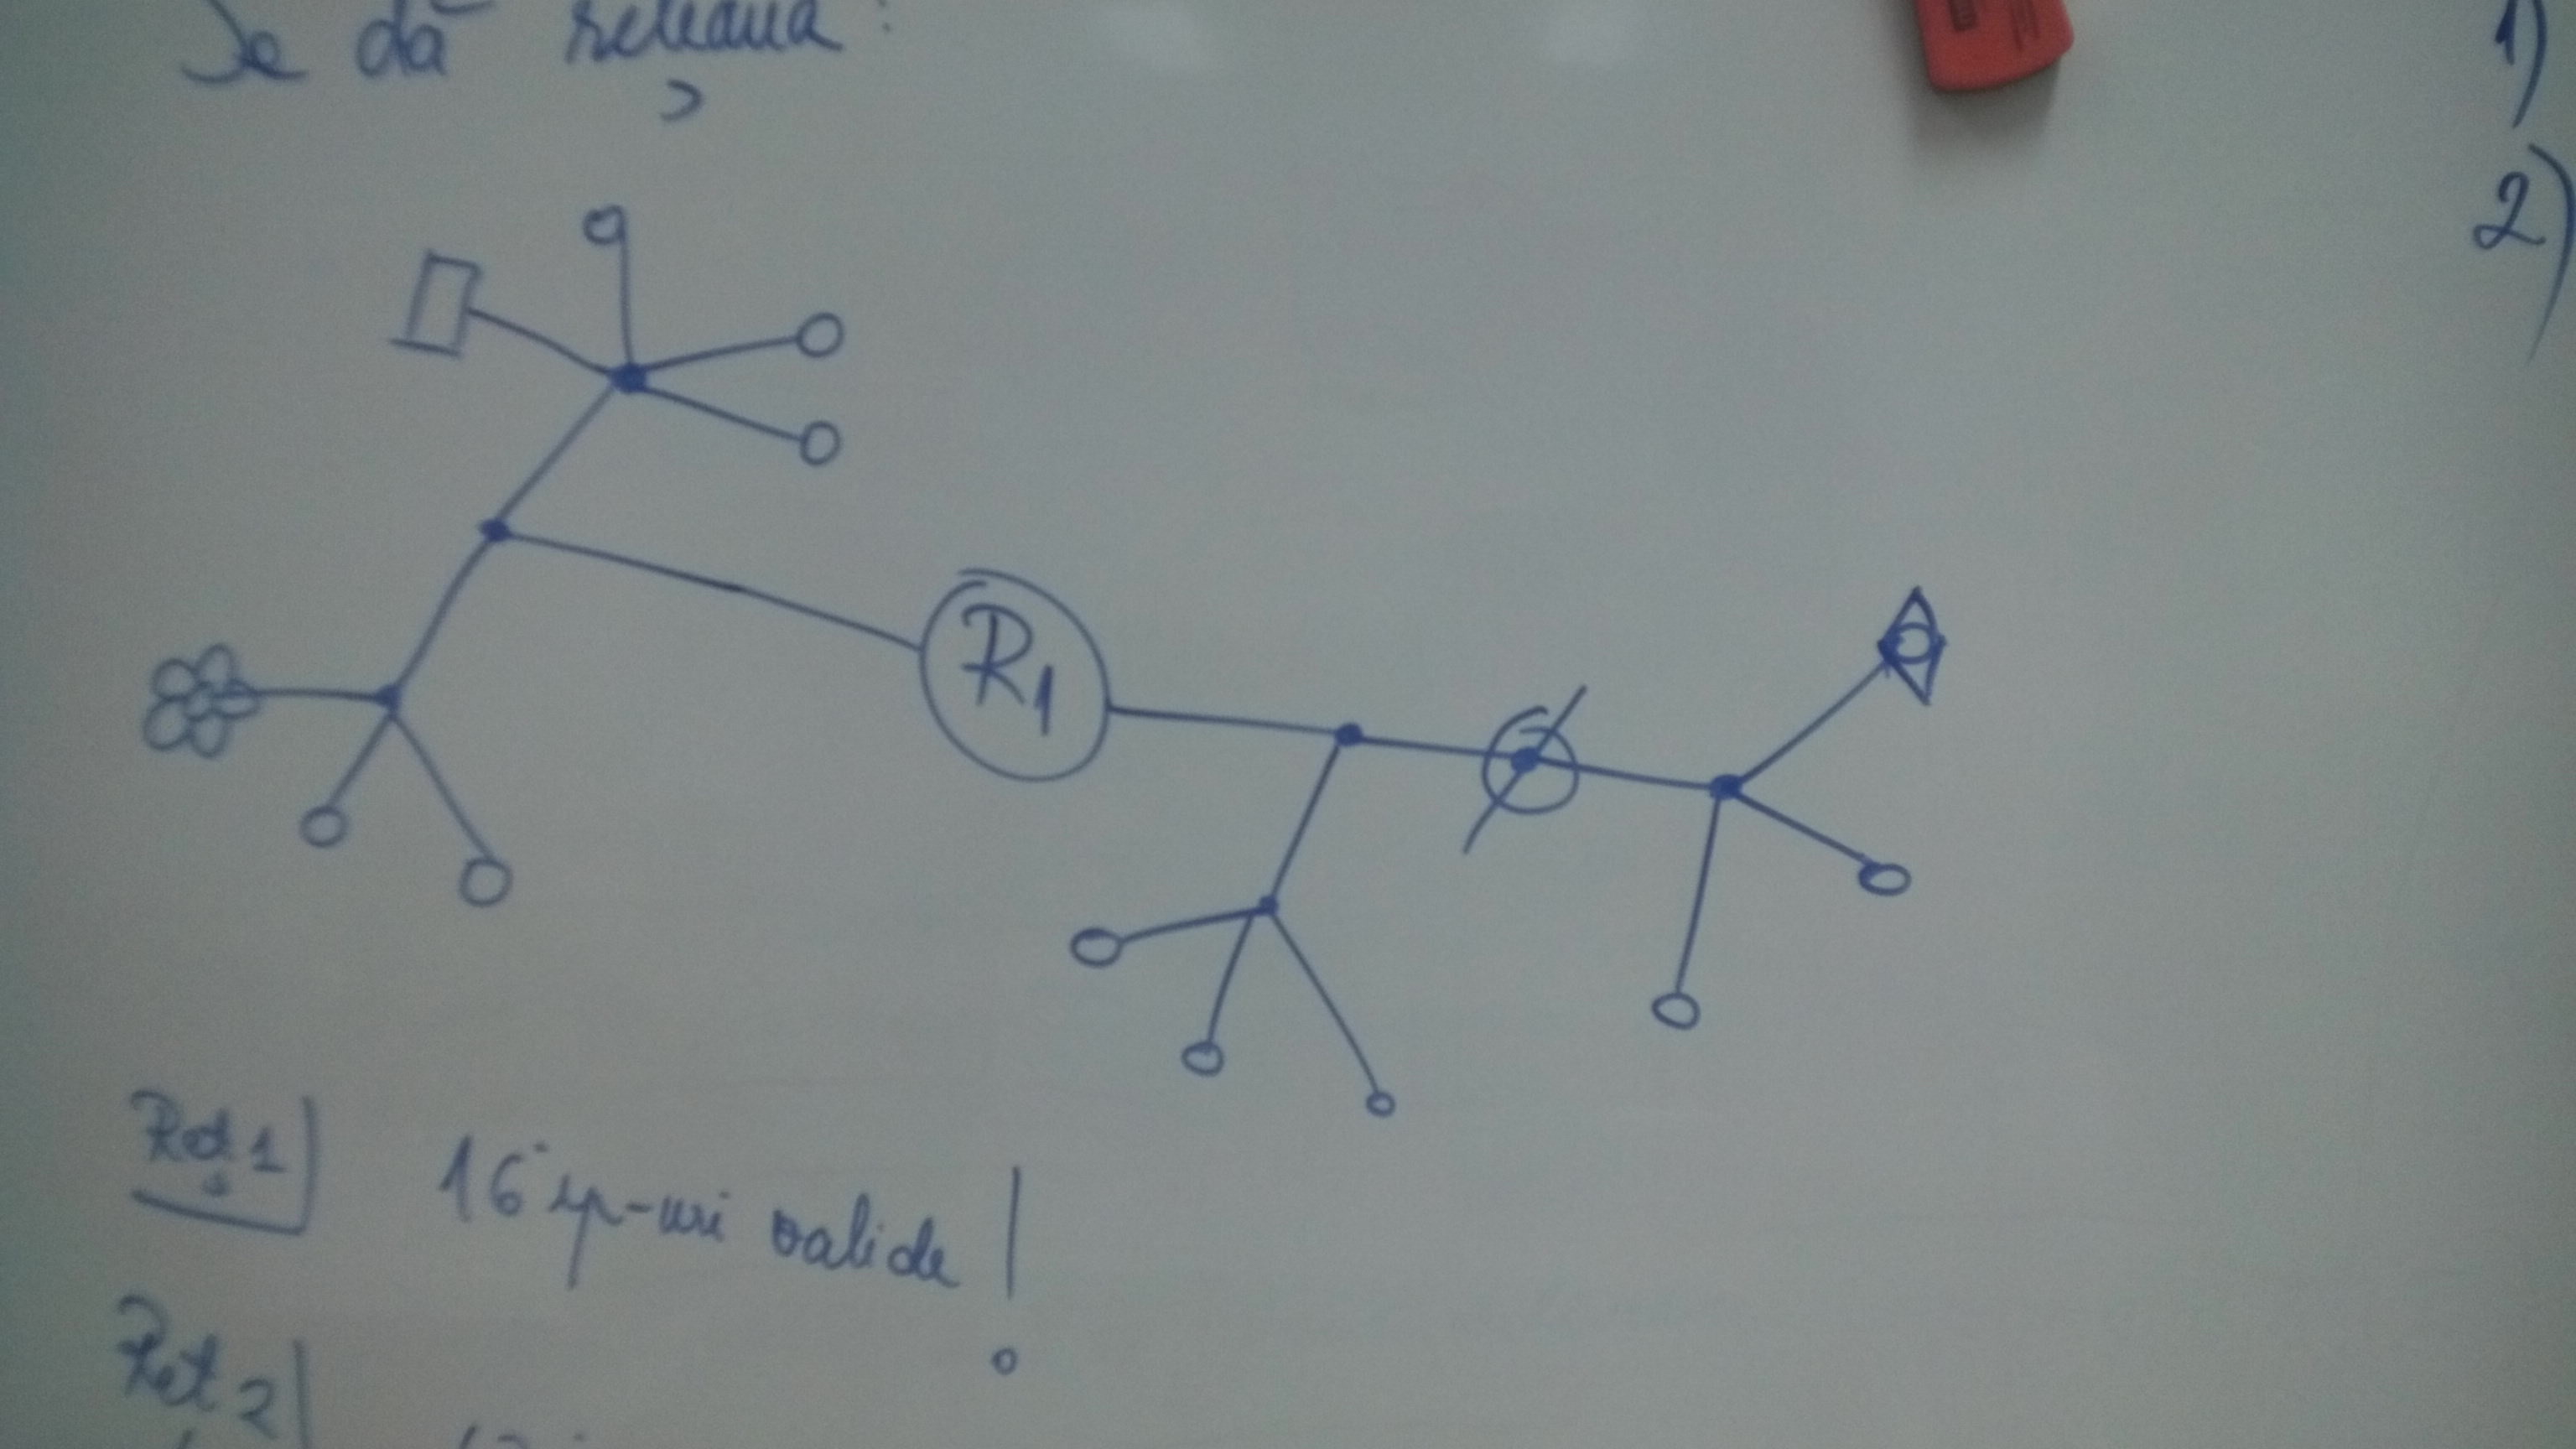 Se dă rețeaua:
1)
2)
R1
Ret 1
16 ip-uri valide!
Ret 2